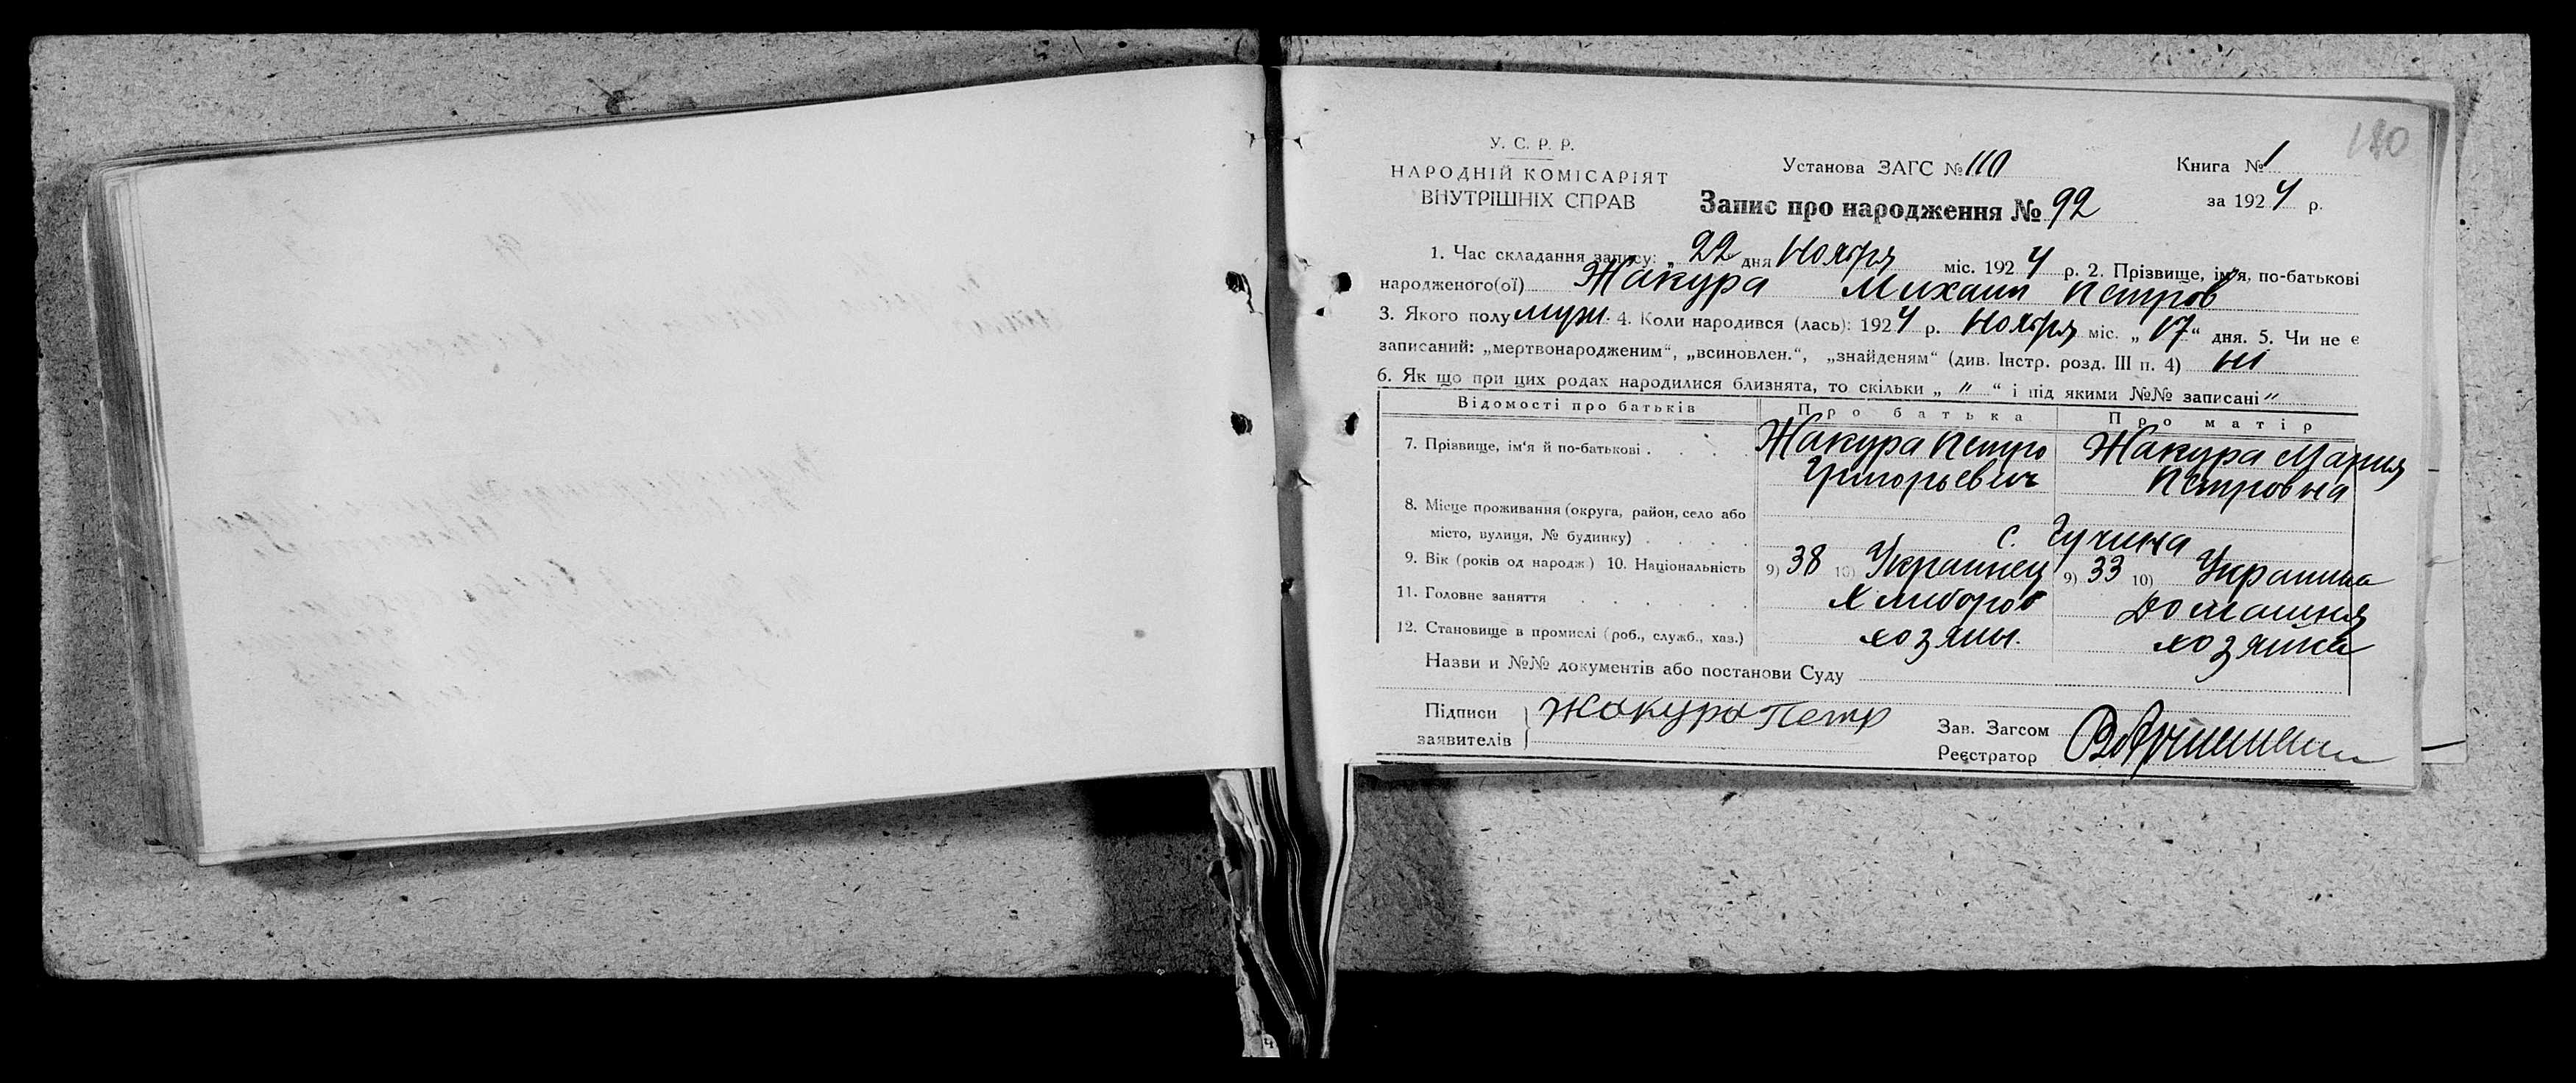 180
У. С. Р. Р.
НАРОДНІЙ КОМІСАРІЯТ
ВНУТРІШНІХ СПРАВ
Установа ЗАГС № 110
Книга № 1
Запис про народження № 92
за 1924 р.
1. Час складання запису: „22 дня Ноября міс. 1924 р. 2. Прізвище, ім'я, по-батькові
народженого(ої) Жакура Михаил Петров
3. Якого полу муж. 4. Коли народився (лась): 1924 р. Ноября міс. „17“ дня. 5. Чи не є
записаний: „мертвонародженим“, „всиновлен.“, „знайденям“ (див. Інстр. розд. III п. 4) ні
6. Як що при цих родах народилися близнята, то скільки „ " “ і під якими №№ записані "
Відомості про батьків Про батька Про матір
7. Прізвище, ім'я й по-батькові . . . . Жакура Петро Жакура Мария
Григорьевич Петровна
8. Місце проживання (округа, район, село або
місто, вулиця, № будинку) . . . . с. Гучина
9. Вік (років од народж) 10. Національність 9) 38 10) Украинец 9) 33 10) Украинка
11. Головне заняття . . . . . . Хлибороб Домашня
12. Становище в промислі (роб., служб., хаз.) хозяин. хозяйка
Назви и №№ документів або постанови Суду
Підписи
заявителів
Жакура Петр
Зав. Загсом
Реєстратор